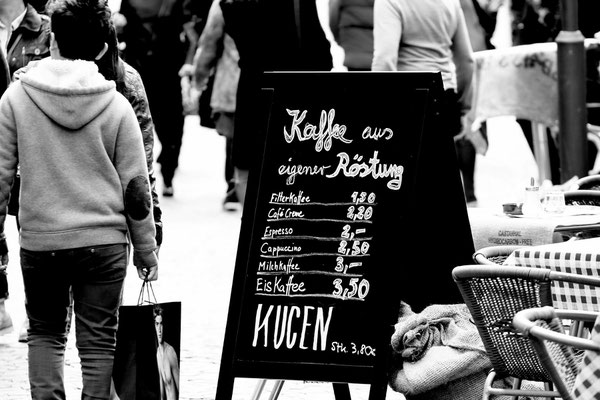 Kaffee aus
eigener Röstung
Filterkaffee 1,90
Café Creme 2,20
Espresso 2,-
Cappuccino 2,50
Milchkaffee 3,-
EisKaffee 3,50
KUCEN Stk. 3,80€